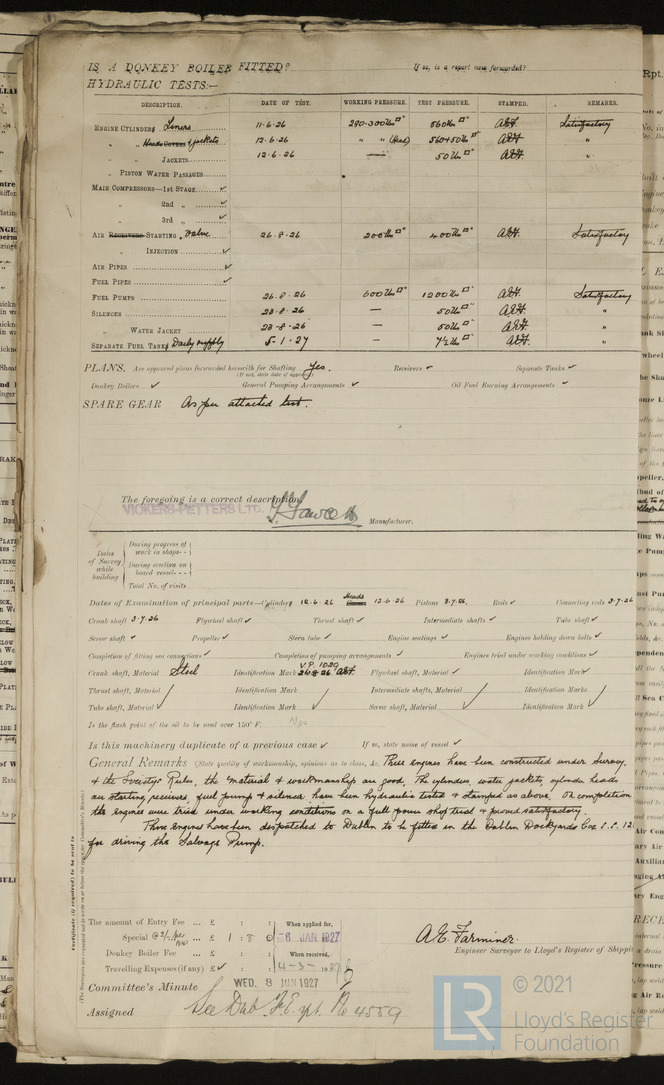 IS A DONKEY BOILER FITTED? If so, is a report now forwarded?
HYDRAULIC TESTS:—
DESCRIPTION. DATE OF TEST. WORKING PRESSURE. TEST PRESSURE. STAMPED. REMARKS.
ENGINE CYLINDERS Liners 11.6.26 280-300 lbs □" 560 lbs □" A.E.F. Satisfactory
" " Heads COVERS & jackets 12.6.26 " " (Head) 560+50 lbs □" A.E.F. "
" " JACKETS 12.6.26 — 50 lbs □" A.E.F. "
" PISTON WATER PASSAGES
MAIN COMPRESSORS—1st STAGE ✓
" 2nd " ✓
" 3rd " ✓
AIR RECEIVERS—STARTING Valve 26.8.26 200 lbs □" 400 lbs □" A.E.F. Satisfactory
" INJECTION ✓
AIR PIPES ✓
FUEL PIPES ✓
FUEL PUMPS 26.8.26 600 lbs □" 1200 lbs □" A.E.F. Satisfactory
SILENCER 23.8.26 — 50 lbs □" A.E.F. "
" WATER JACKET 23.8.26 — 50 lbs □" A.E.F. "
SEPARATE FUEL TANKS Daily supply 5.1.27 — 7½ lbs □" A.E.F. "
PLANS. Are approved plans forwarded herewith for Shafting Yes. Receivers ✓ Separate Tanks ✓
(If not, state date of approval)
Donkey Boilers ✓ General Pumping Arrangements ✓ Oil Fuel Burning Arrangements ✓
SPARE GEAR As per attached list.
The foregoing is a correct description,
VICKERS-PETTERS LTD.
Manufacturer.
Dates of Survey while building
During progress of work in shops--
During erection on board vessel---
Total No. of visits
Dates of Examination of principal parts—Cylinders 12.6.26 Heads Covers 12.6.26 Pistons 3.7.26. Rods ✓ Connecting rods 3.7.26
Crank shaft 3.7.26 Flywheel shaft ✓ Thrust shaft ✓ Intermediate shafts ✓ Tube shaft ✓
Screw shaft ✓ Propeller ✓ Stern tube ✓ Engine seatings ✓ Engines holding down bolts ✓
Completion of fitting sea connections ✓ Completion of pumping arrangements ✓ Engines tried under working conditions ✓
Crank shaft, Material Steel Identification Mark V.P. 1020 26.8.26 A.E.F. Flywheel shaft, Material ✓ Identification Mark ✓
Thrust shaft, Material ✓ Identification Mark ✓ Intermediate shafts, Material ✓ Identification Marks ✓
Tube shaft, Material ✓ Identification Mark ✓ Screw shaft, Material ✓ Identification Mark ✓
Is the flash point of the oil to be used over 150° F.
Is this machinery duplicate of a previous case ✓ If so, state name of vessel ✓
General Remarks (State quality of workmanship, opinions as to class, &c. These engines have been constructed under Survey,
& the Society's Rules, the material & workmanship are good. The cylinders, water jackets, cylinder heads
air starting receiver, fuel pump & silencer have been hydraulic tested & stamped as above. On completion
the engines were tried under working conditions on a full power shop trial & proved satisfactory.
These engines have been despatched to Dublin to be fitted in the Dublin Dockyards Cos. S.S. 12
for driving the Salvage Pump.
Certificate (if required) to be sent to
(The Surveyors are requested not to write on or below the space for Committee's Minute.)
The amount of Entry Fee ... £ : : When applied for,
Special ... £ 1 : 8 : 0 6 JAN 1927
Donkey Boiler Fee ... £ : : When received,
Travelling Expenses (if any) £ ✓ 4-3-1927
A.E. Farminer.
Engineer Surveyor to Lloyd's Register of Shippi
Committee's Minute WED. 8 JUN 1927
Assigned See Dub. F.E. rpt. No 4559
LR
© 2021
Lloyd's Register
Foundation